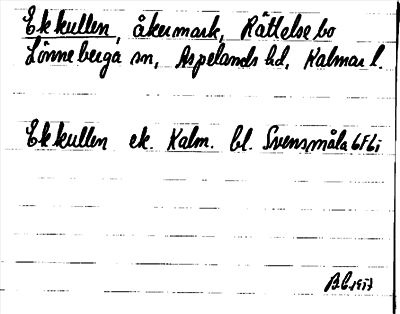 Ekkullen, åkermark, Rättelsebo
Lönneberga sn, Aspelands hd, Kalmar l.
Ekkullen ek. Kalm. bl. Svensmåla 6F6i
1957